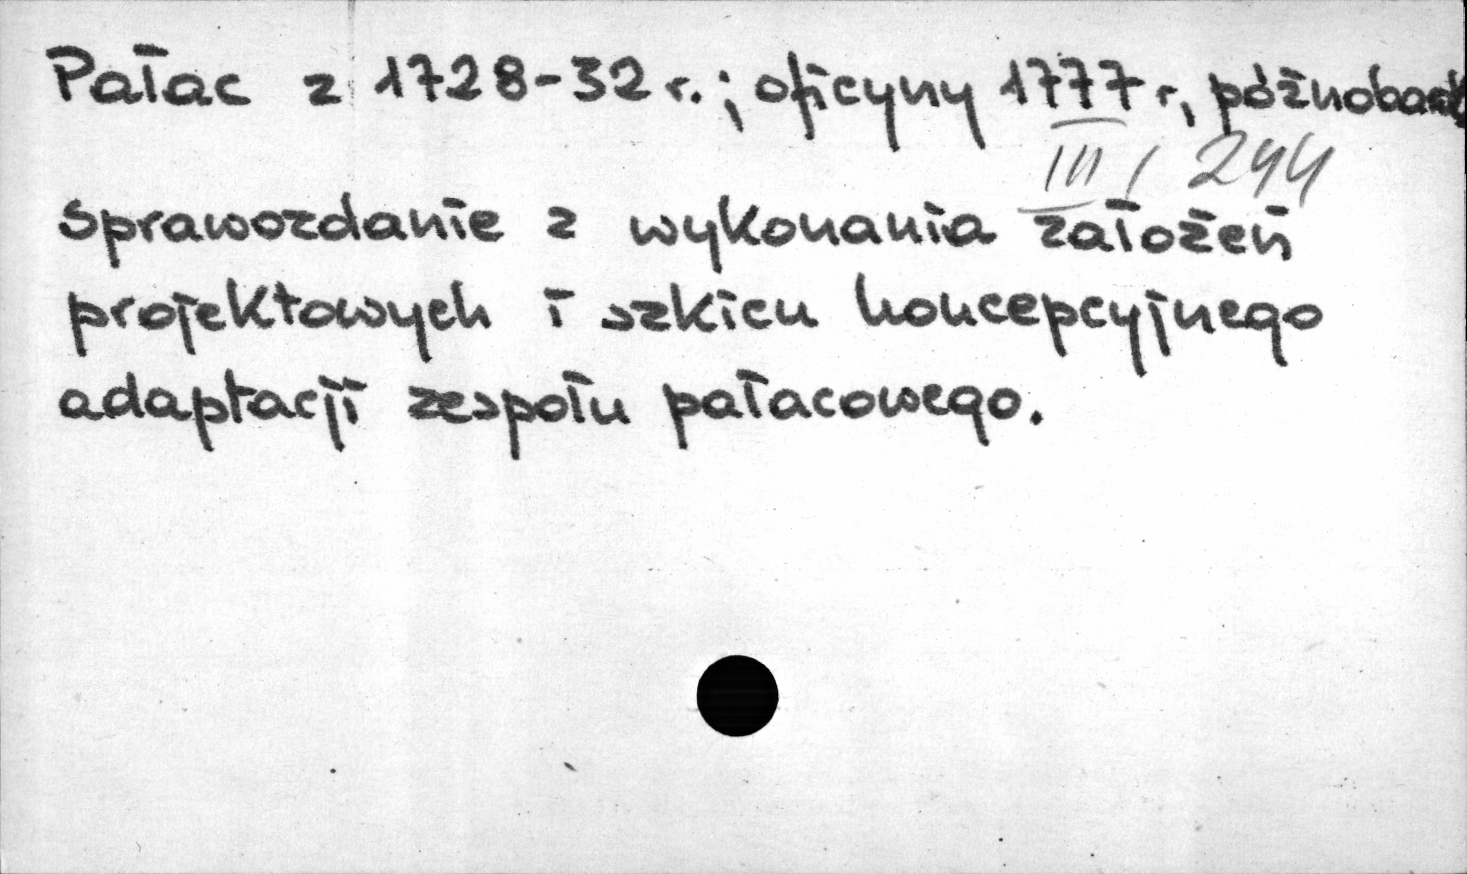 Pałac z 1728-32 r.; oficyny 1777 r, późnobarok
III / 244
Sprawozdanie z wykonania założeń
projektowych i szkicu koncepcyjnego
adaptacji zespołu pałacowego.